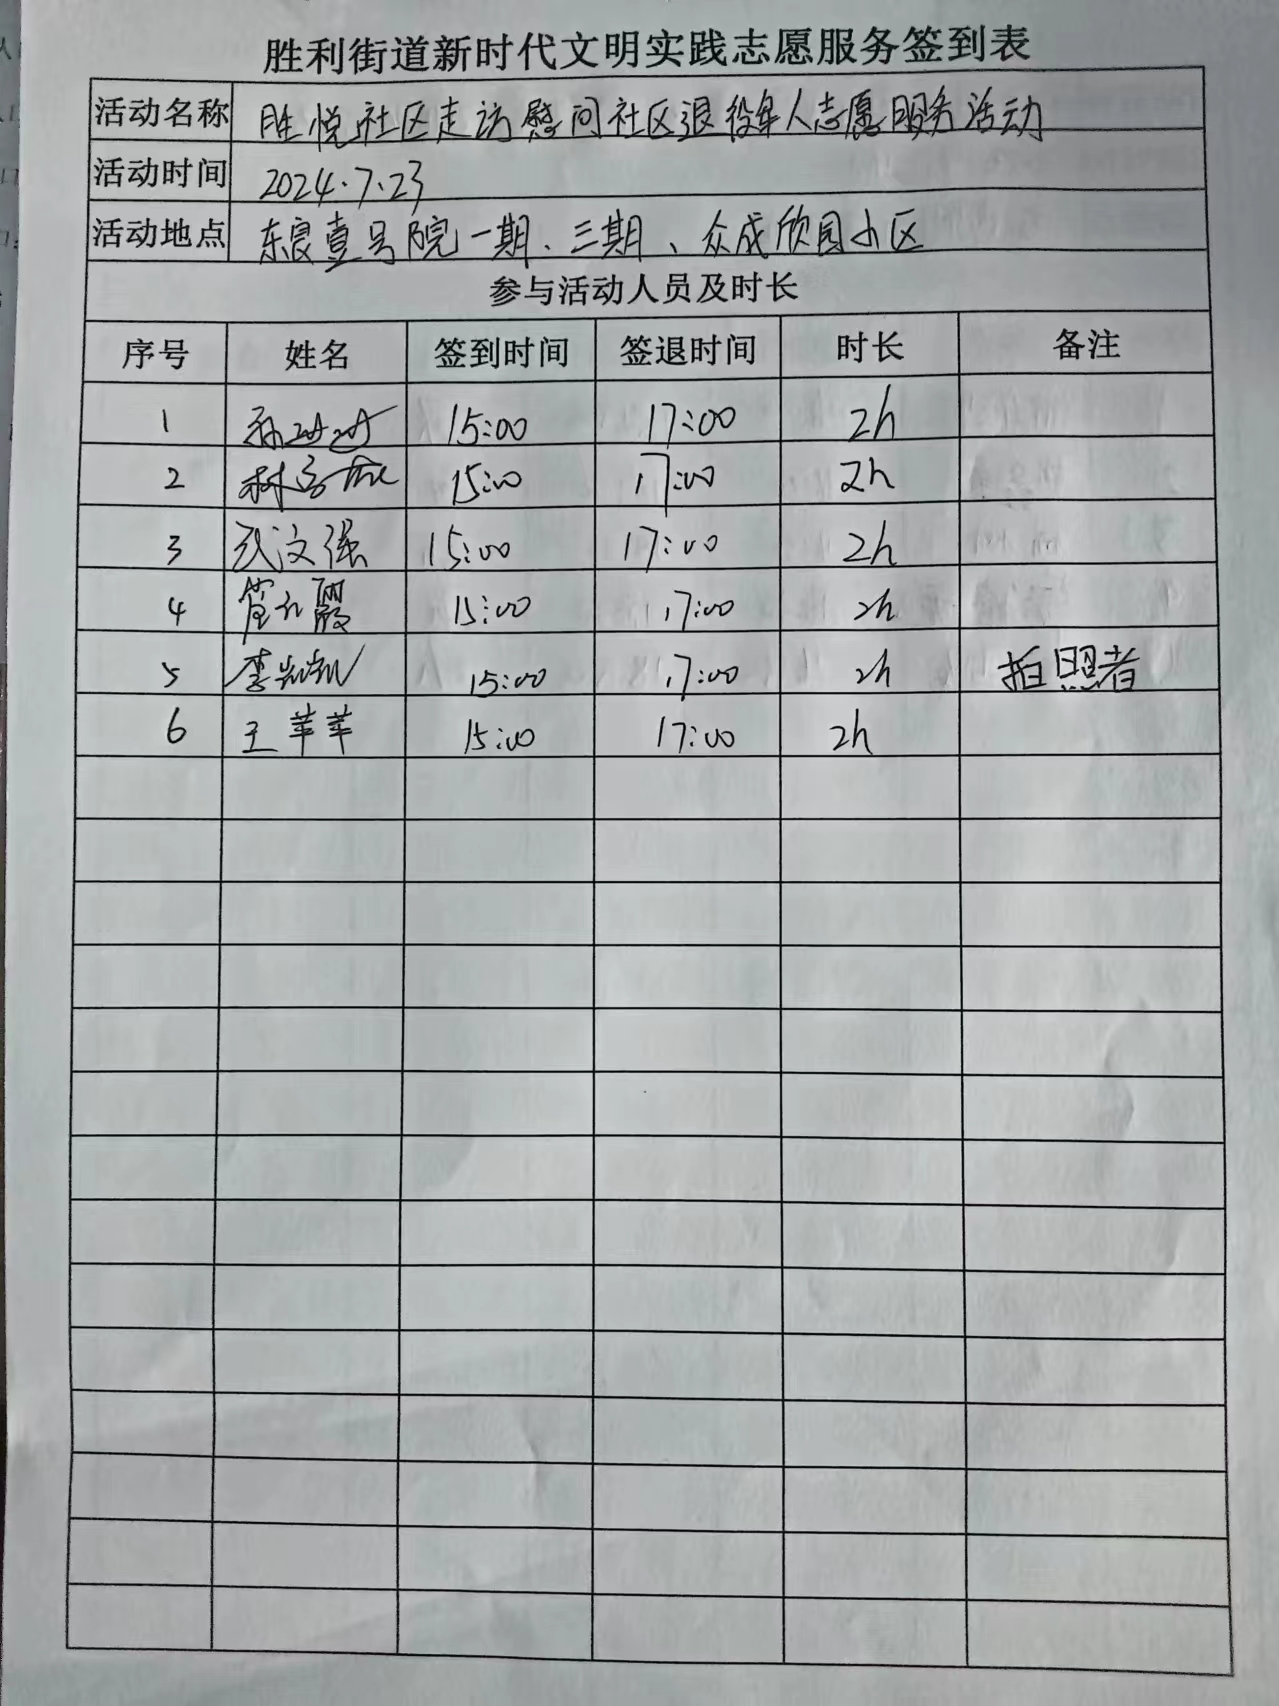 胜利街道新时代文明实践志愿服务签到表
活动名称 胜悦社区走访慰问社区退役军人志愿服务活动
活动时间 2024.7.23
活动地点 东良壹号院一期、三期、众成欣园小区
参与活动人员及时长
序号 姓名 签到时间 签退时间 时长 备注
1 15:00 17:00 2h
2 林 15:00 17:00 2h
3 武文强 15:00 17:00 2h
4 霞 15:00 17:00 2h
5 李 15:00 17:00 2h 拍照者
6 王苹苹 15:00 17:00 2h